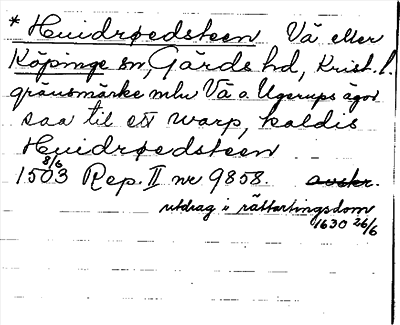 * Huidrøedsteen Vä eller
Köpinge sn, Gärds hd, Krist. l.
gränsmärke mln Vä o. Ugerups ägor
saa til ett warp, kaldis
Huidrøedsteen
8/6
1503 Rep. II nr 9858. avskr.
utdrag i rättartingsdom
1630 26/6